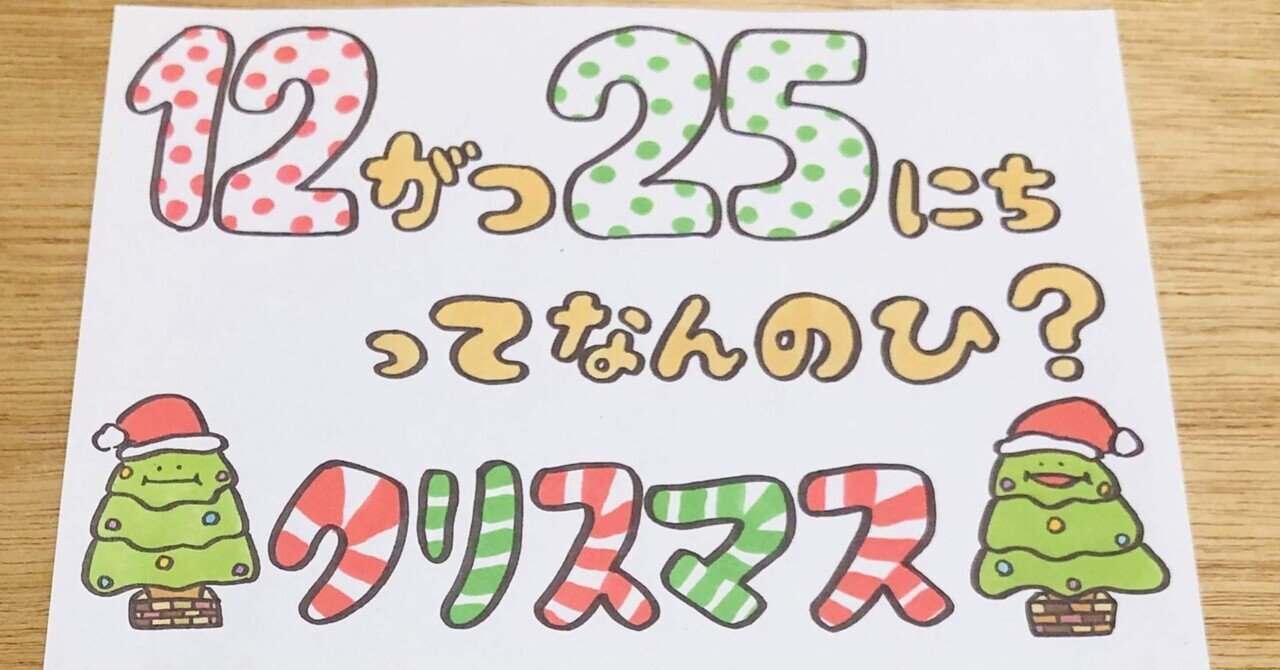 12がつ25にち
ってなんのひ?
クリスマス